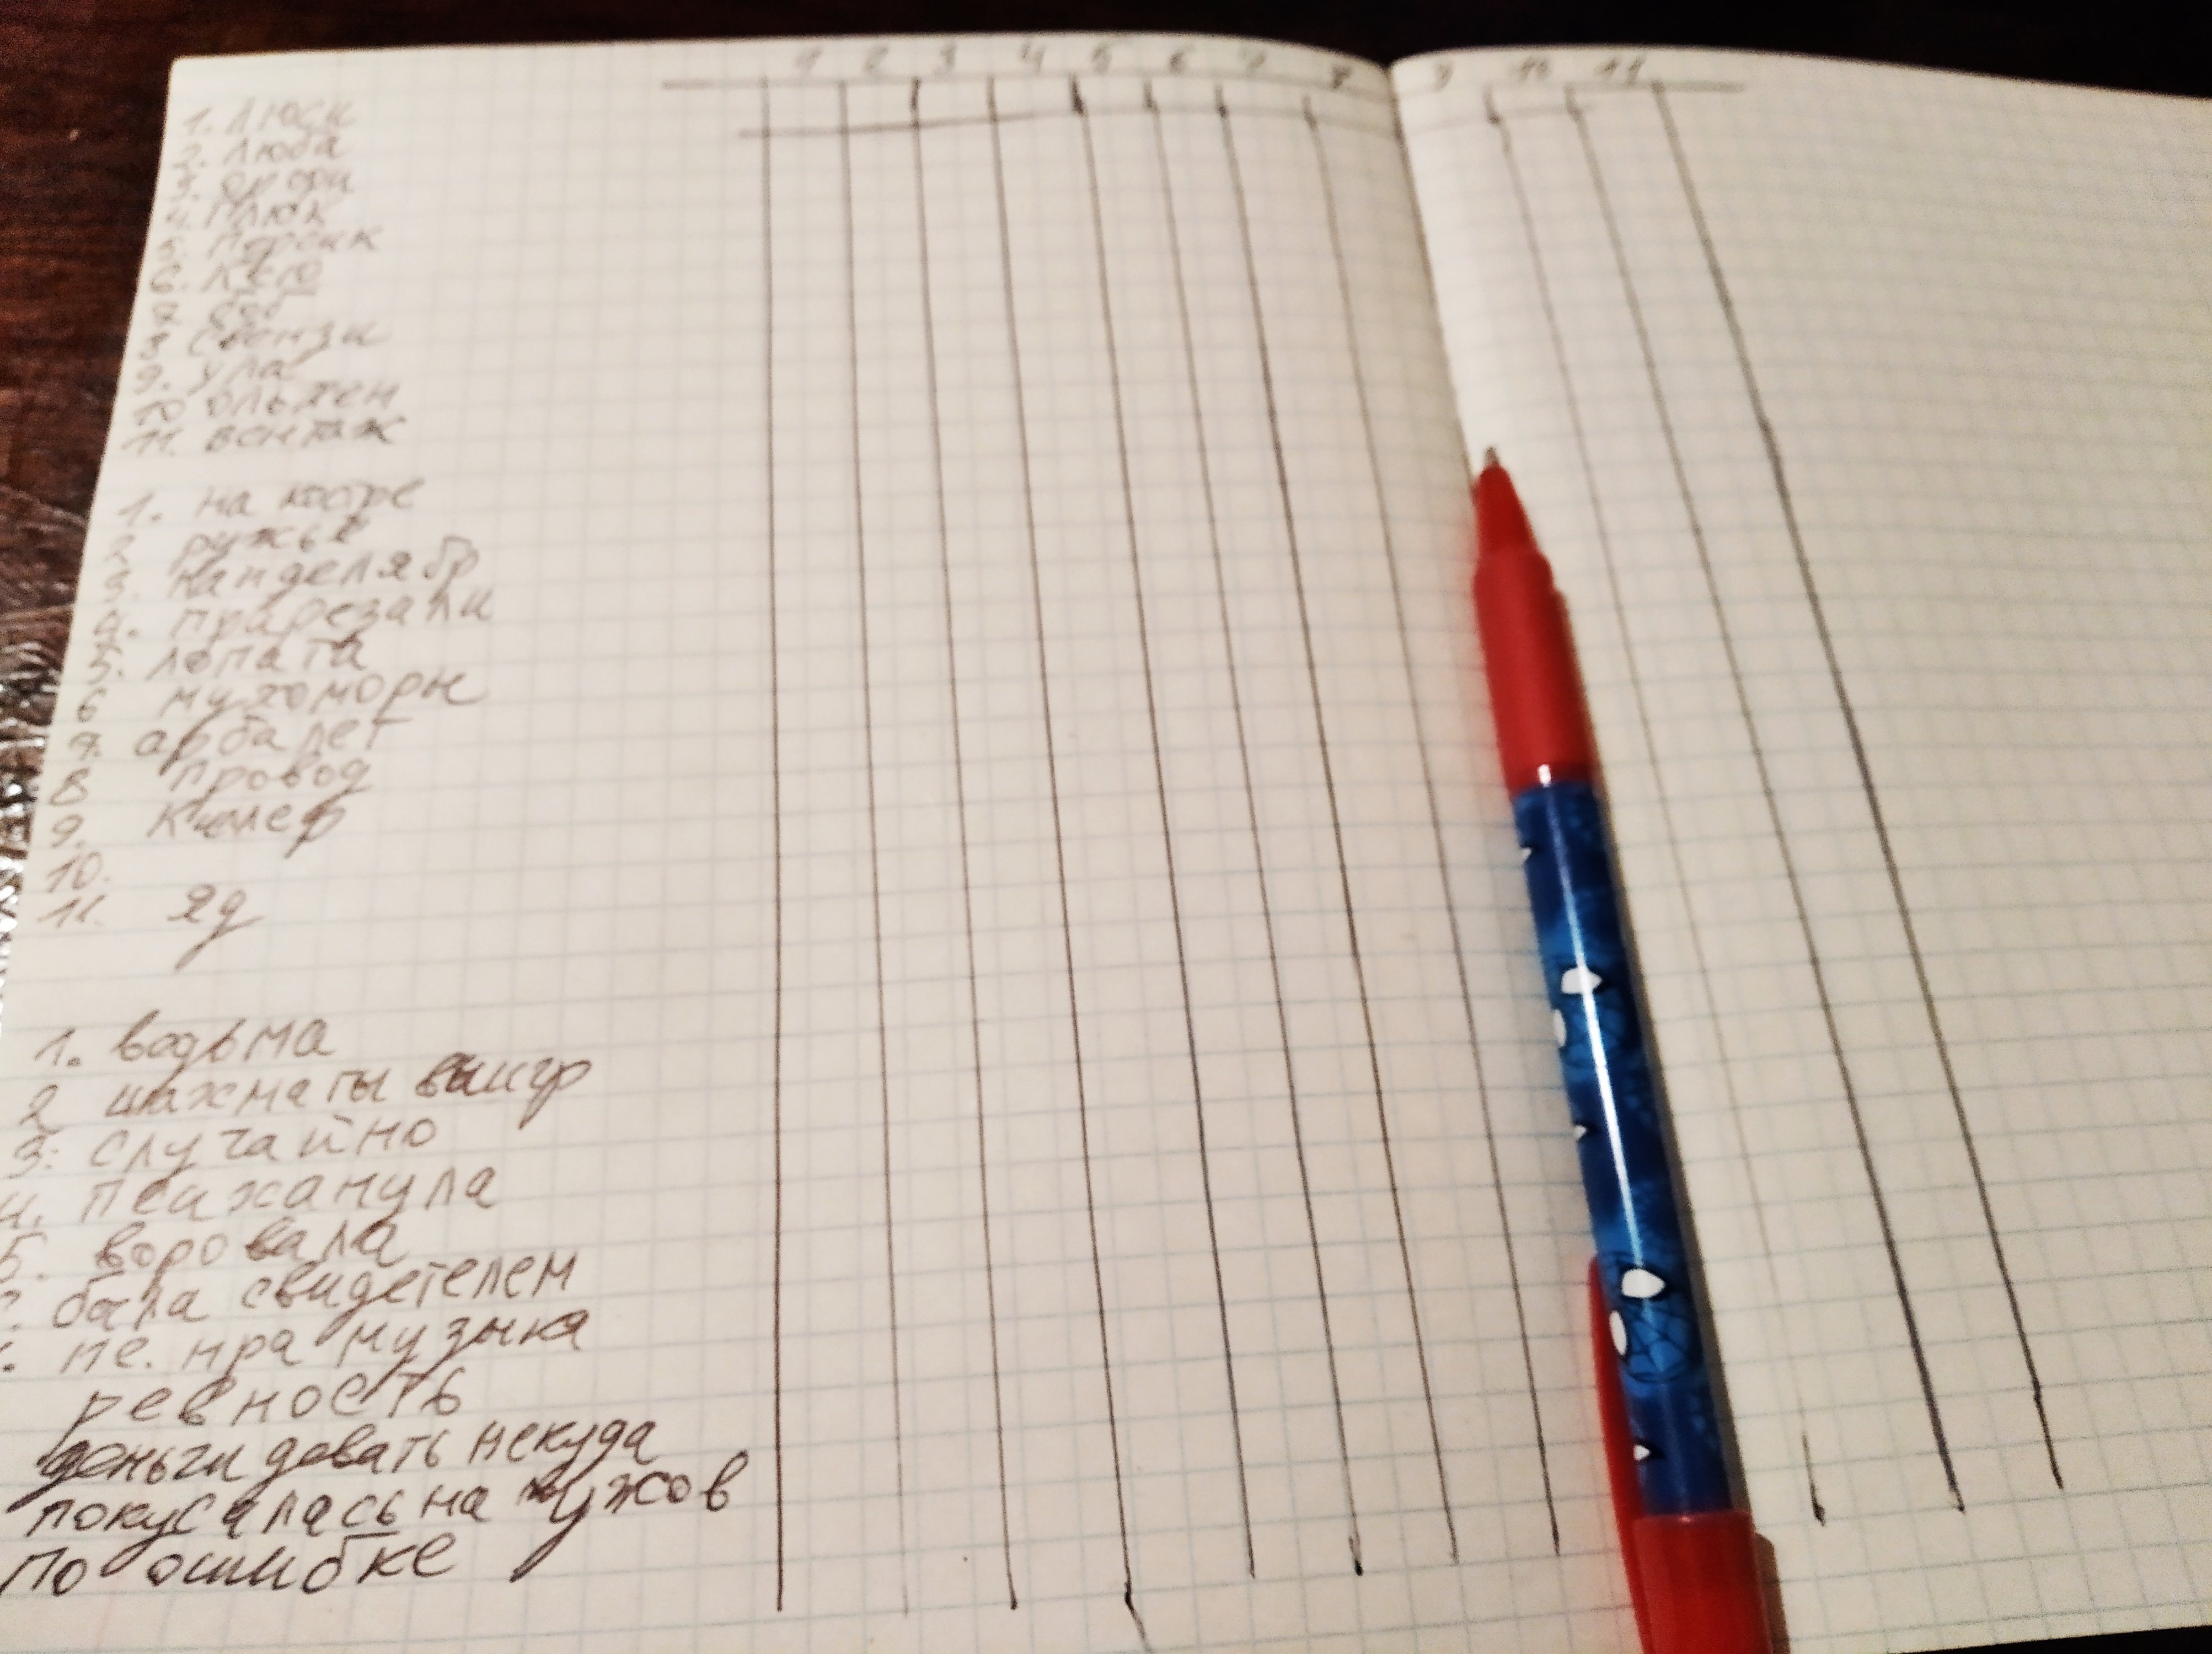 1 2 3 4 5 6 7 8 9 10 11
1. Люси
2. Люба
3.
4. Плюк
5. Персик
6.
7.
8. Свензи
9. Ула
10 Ольхен
11. вантаж
1. на костре
2 ружьё
3. канделябр
4. прирезали
5. лопата
6 мухоморы
7. арбалет
8 провод
9.
10.
11. яд
1. ведьма
2 шахматы выигр
3. случайно
4. психанула
5. воровала
6. была свидетелем
7. не. нра музыка
ревность
деньги девать некуда
покусалась на мужов
по ошибке